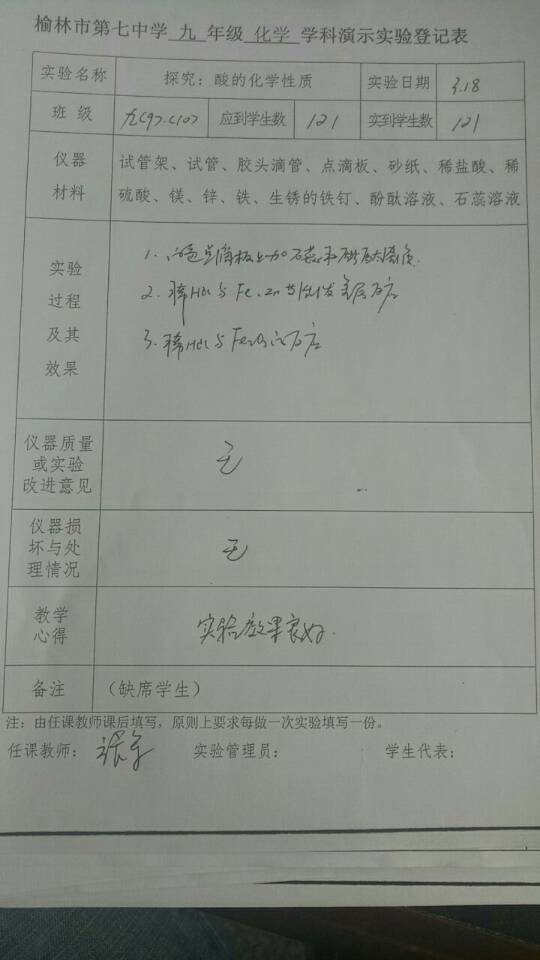 榆林市第七中学 九 年级 化学 学科演示实验登记表
实验名称 探究：酸的化学性质 实验日期 3.18
班 级 九(9).(10) 应到学生数 121 实到学生数 121
仪器 材料 试管架、试管、胶头滴管、点滴板、砂纸、稀盐酸、稀
硫酸、镁、锌、铁、生锈的铁钉、酚酞溶液、石蕊溶液
实验
过程
及其
效果
1. 点滴板上加石蕊和酚酞
2. 稀HCl与Fe、Zn 金属反应
3. 稀HCl与Fe₂O₃的反应
仪器质量
或实验
改进意见
无
仪器损
坏与处
理情况
无
教学
心得
实验效果良好.
备注 （缺席学生）
注：由任课教师课后填写，原则上要求每做一次实验填写一份。
任课教师： 实验管理员： 学生代表：